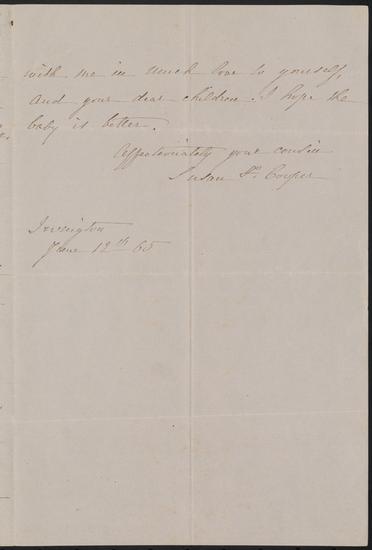 with me in much love to yourself,
and your dear children. I hope the
baby is better.
Affectionately your cousin
Susan F. Cooper
Irvington
June 12th 65